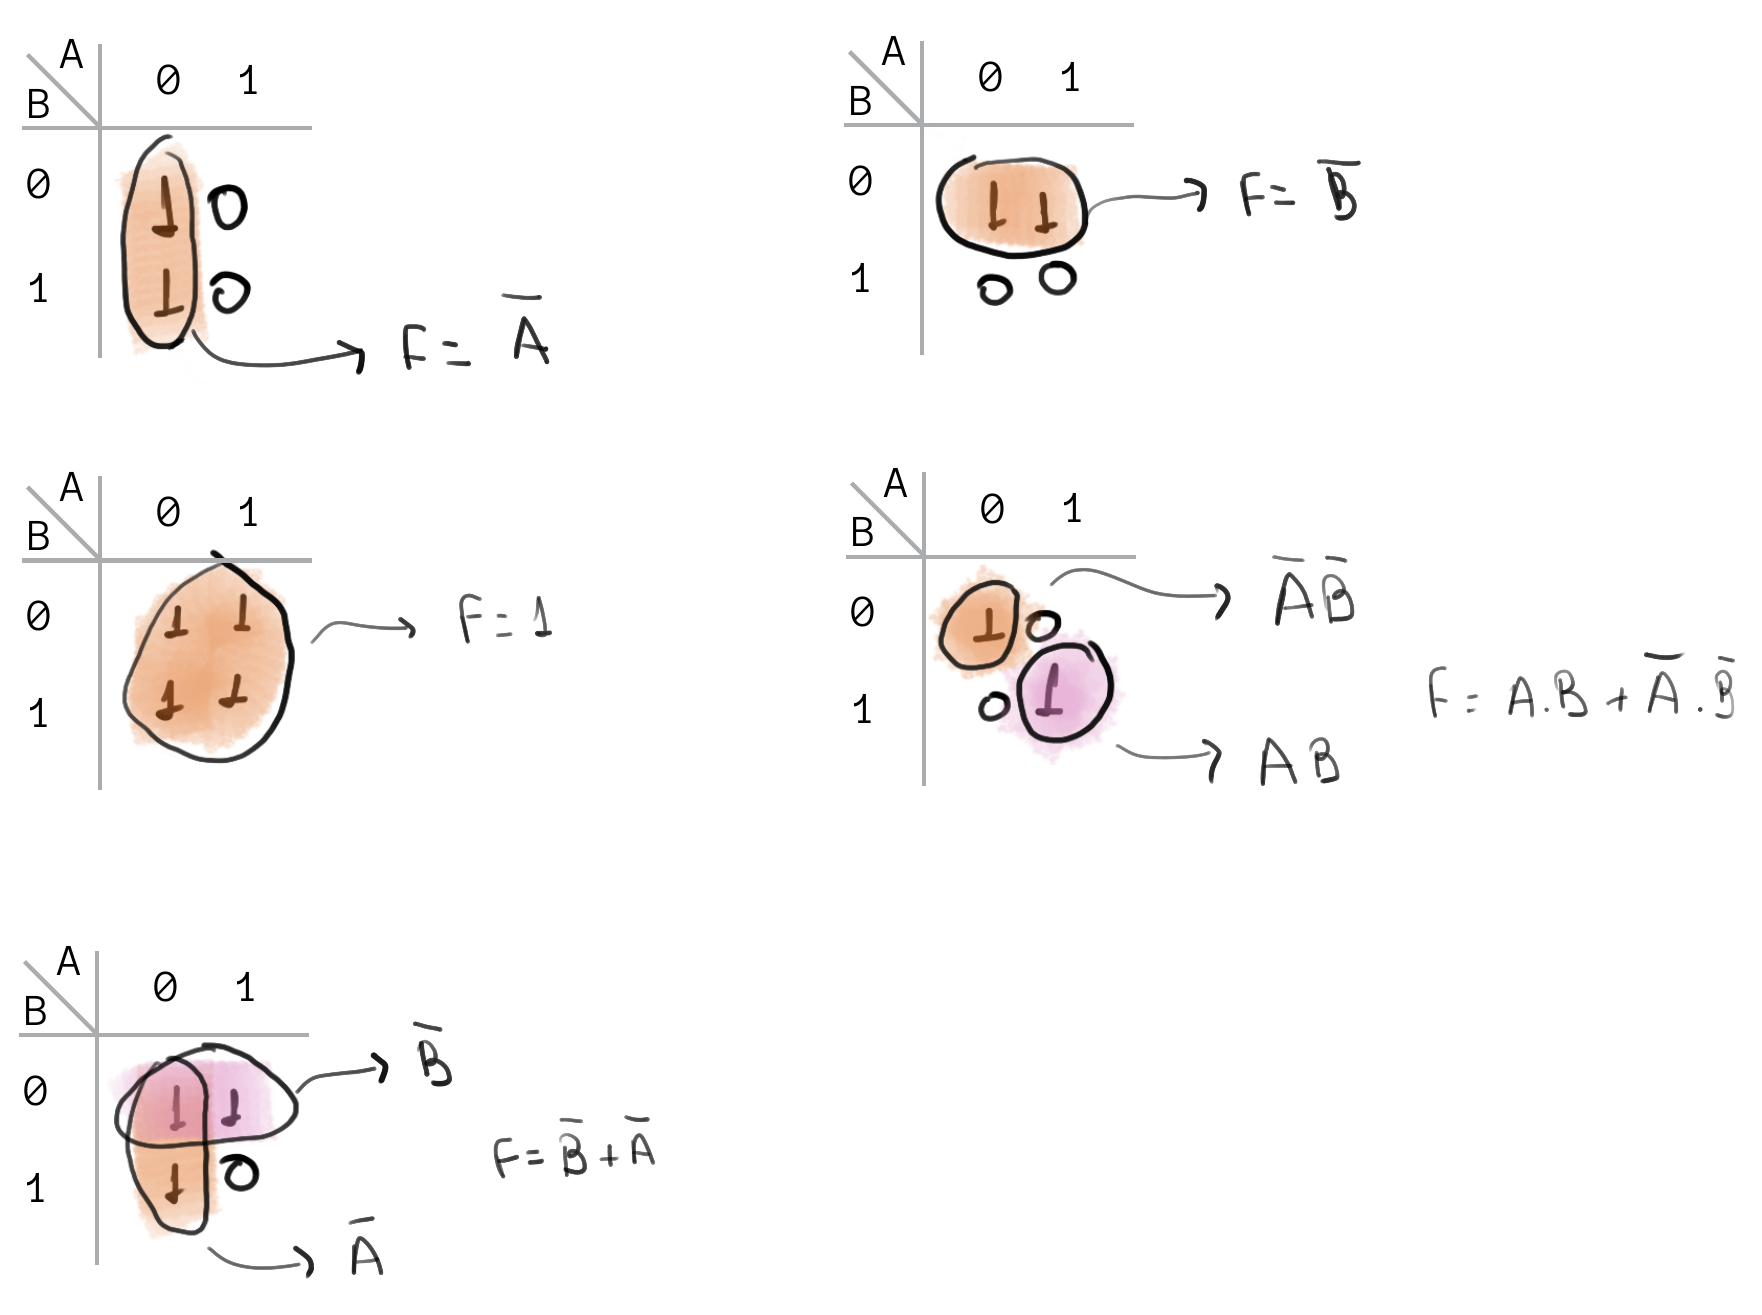 A
0 1
B
0 1 0
1 1 0
F = A̅
A
0 1
B
0 1 1
1 0 0
F = B̅
A
0 1
B
0 1 1
1 1 1
F = 1
A
0 1
B
0 1 0
1 0 1
A̅ B̅
A B
F = A.B + A̅.B̅
A
0 1
B
0 1 1
1 1 0
B̅
F = B̅ + A̅
A̅